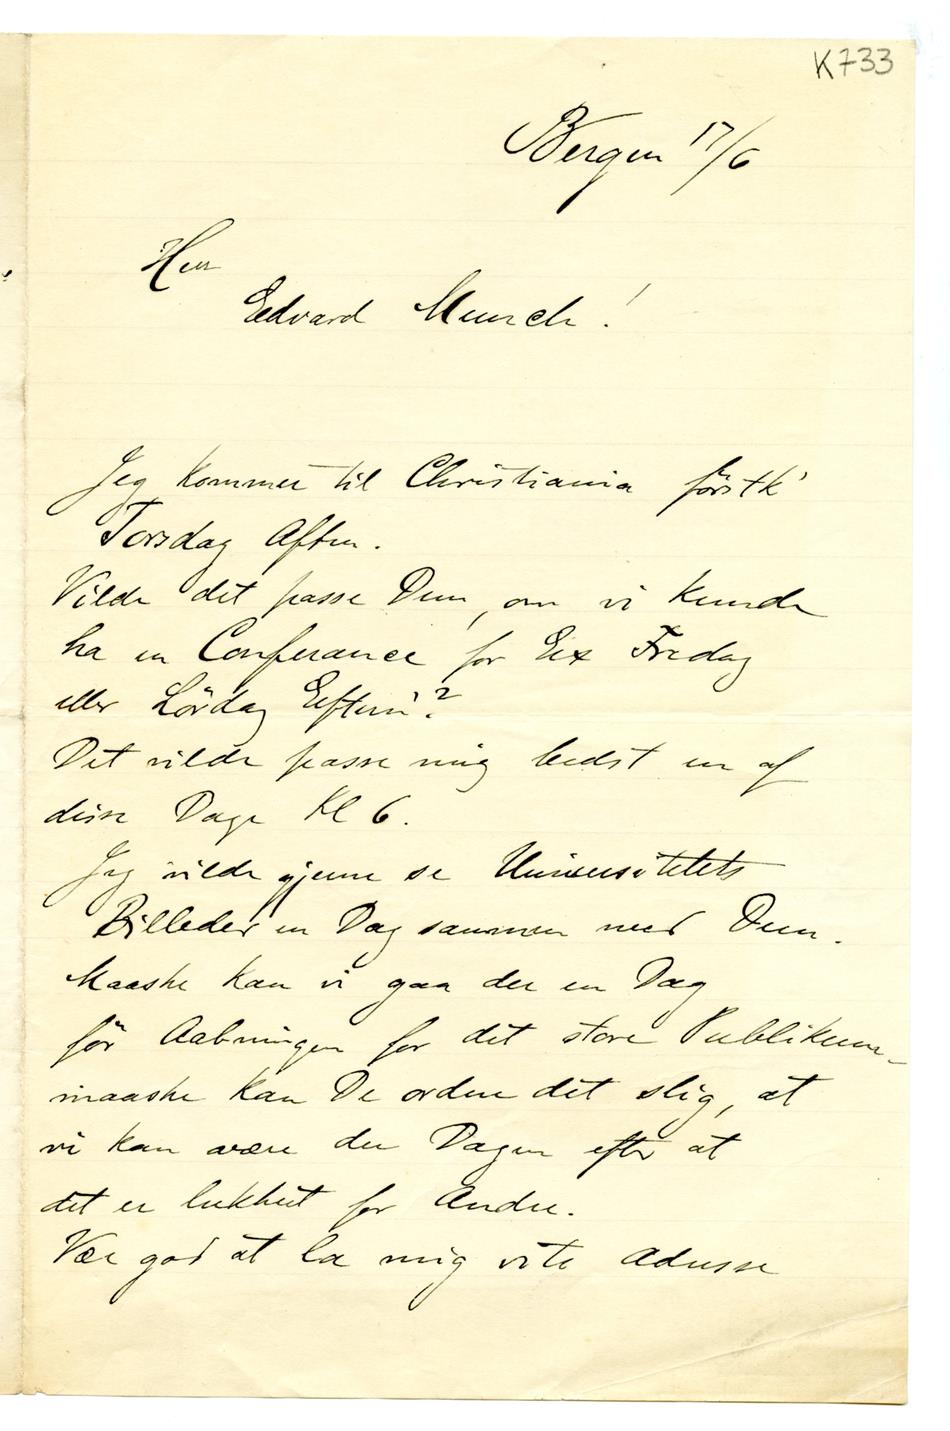 K733
Bergen 17/6
Herr
Edvard Munch!
Jeg kommer til Christiania förstk
Torsdag Aften.
Vilde det passe Dem, om vi kunde
ha en Conferance for Ex Fredag
eller Lördag Efterm?
Det vilde passe mig bedst en af
disse Dage Kl 6.
Jeg vilde gjerne se Universitetets
Billeder en Dag sammen med Dem.
Maaske kan vi gaa der en Dag
för Aabningen for det store Publikum –
maaske kan De ordne det slig, at
vi kan være der Dagen efter at
det er lukket for Andre.
Vær god at la mig vite Adresse